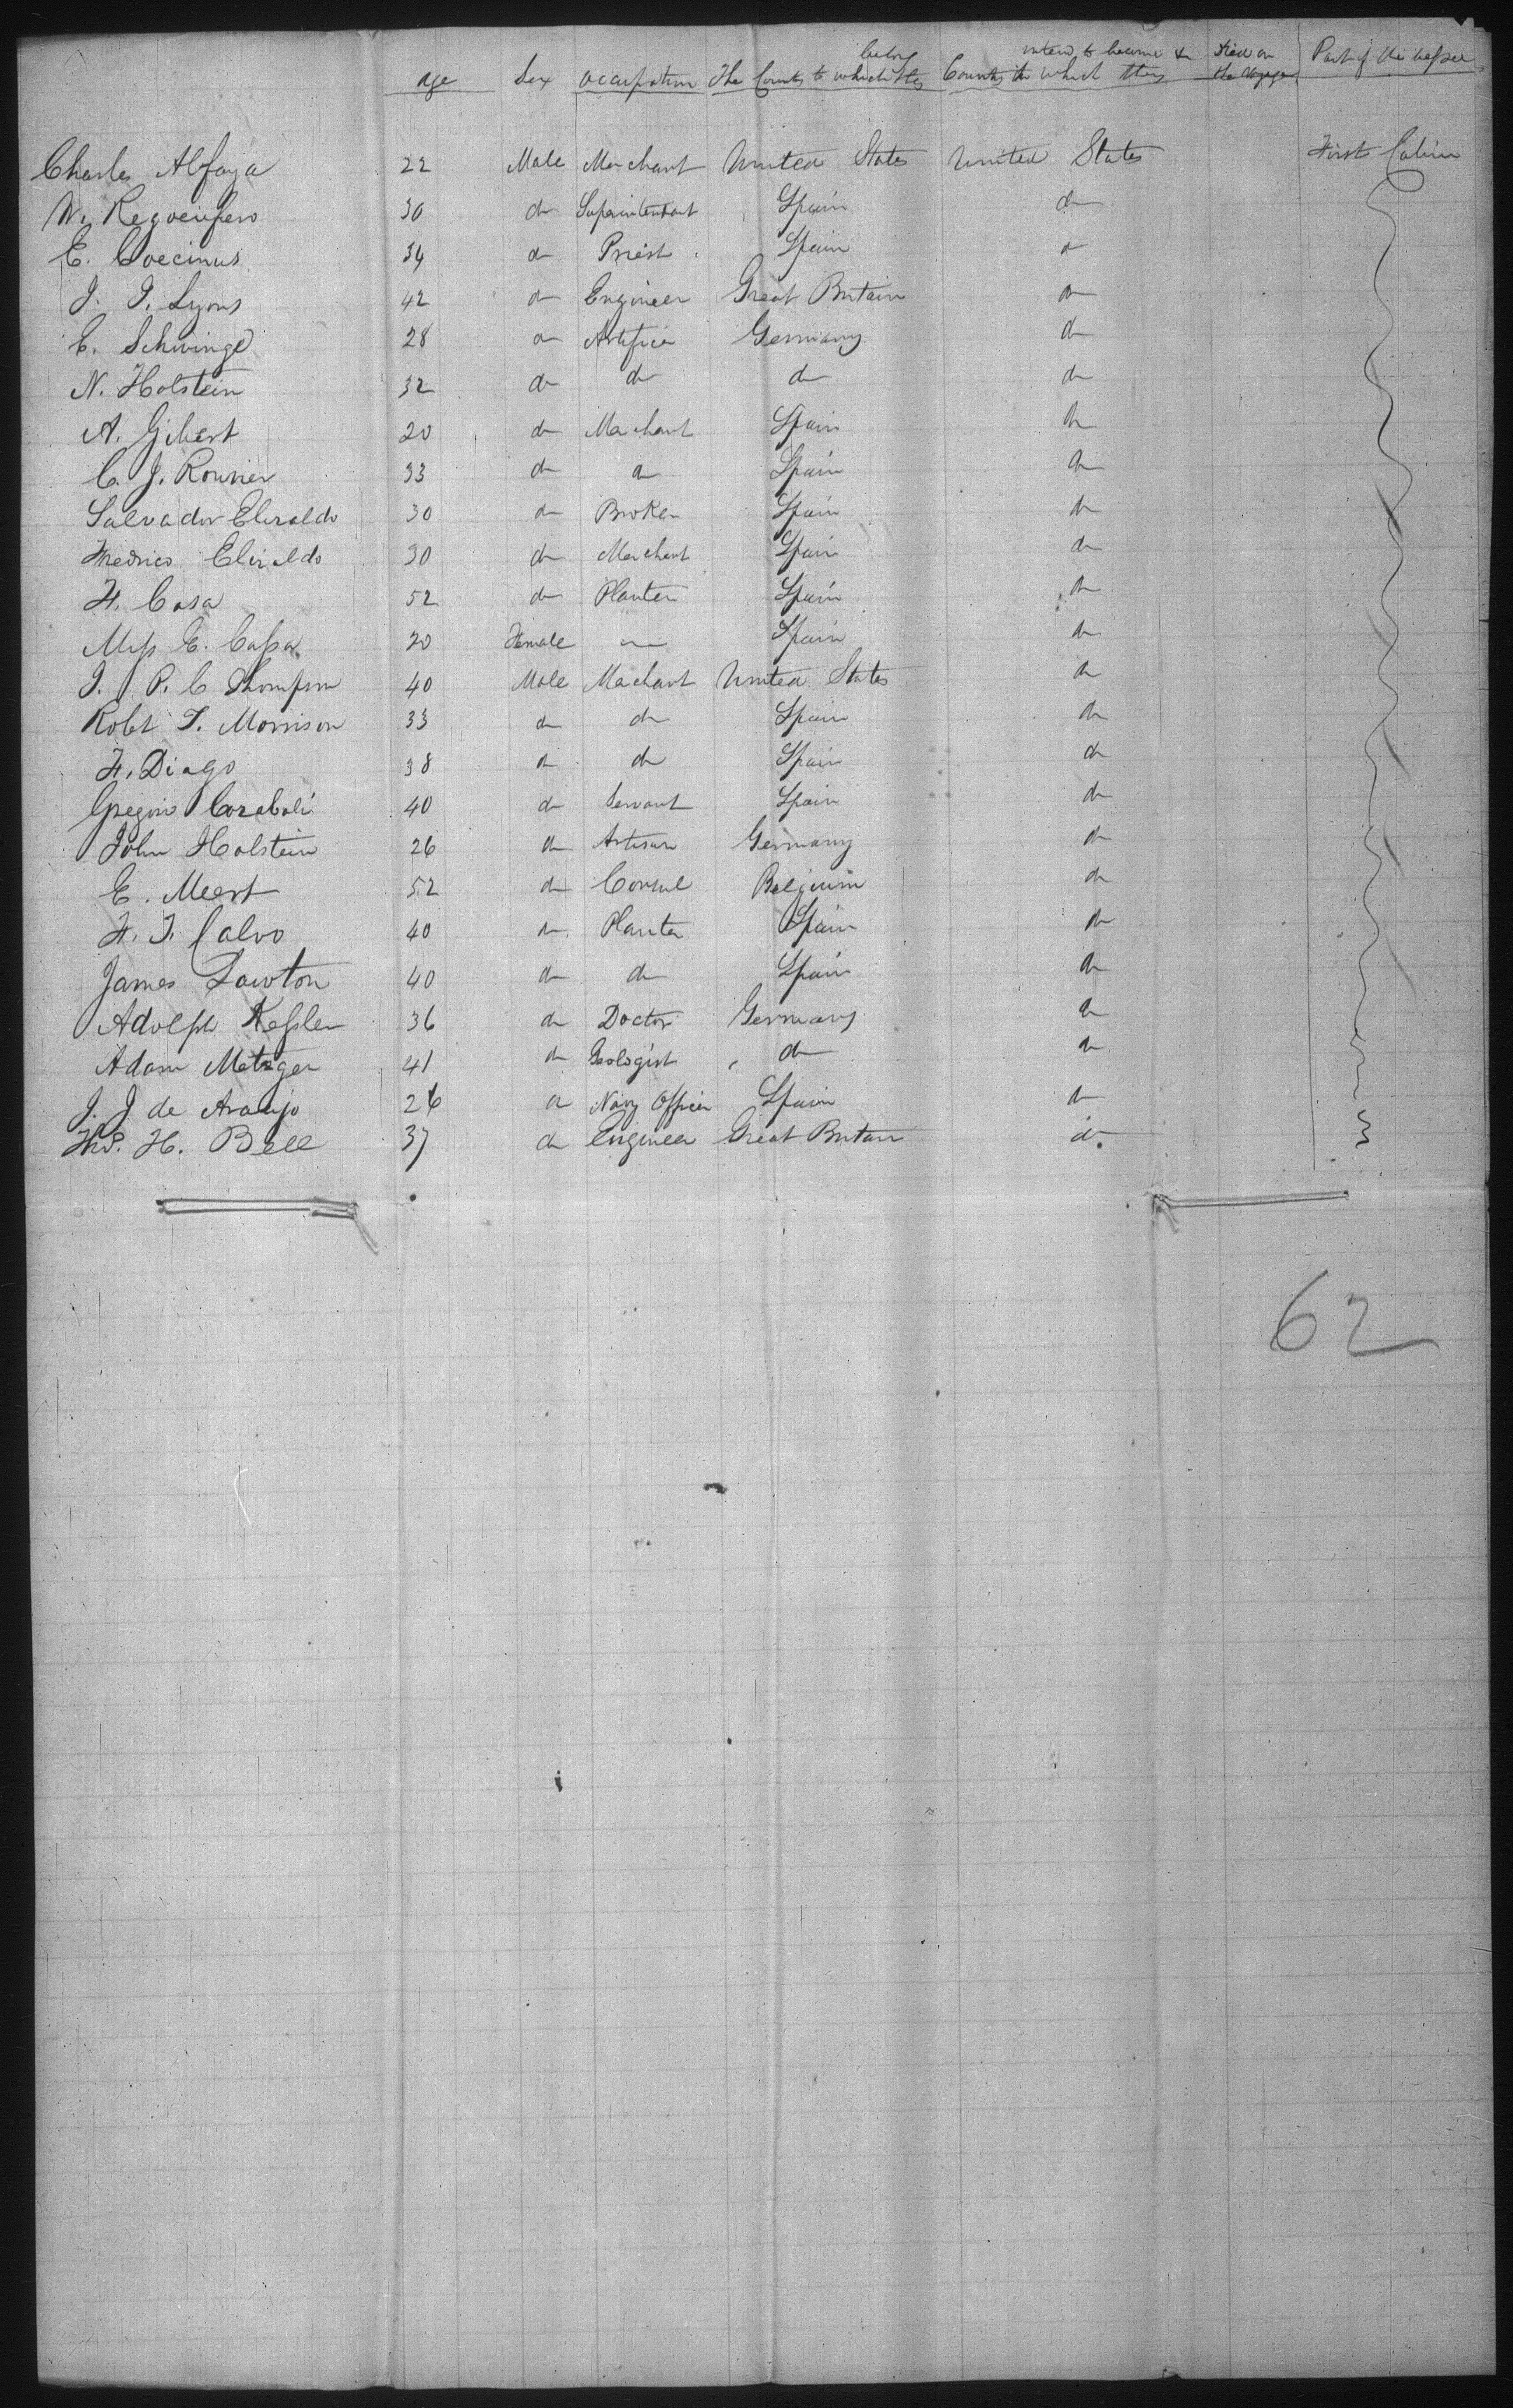 age Sex Occupation The Country to which they belong Country in which they intend to become in Died on the Voyage Part of the vessel
Charles Alfaya 22 Male Merchant United States United States First Cabin
30 do Superintendent Spain do
E. 34 do Priest Spain do
J. T. Lyons 42 do Engineer Great Britain do
E. Schwinge 28 do Artificer Germany do
N. Holstein 32 do do do do
A. Gibert 20 do Merchant Spain do
C. J. 33 do do Spain do
Salvador 30 do Broker Spain do
30 do Merchant Spain do
F. Casa 52 do Planter Spain do
Miss E. Cassa 20 Female — Spain do
J. P. C Thompson 40 Male Merchant United States do
Robt T. Morrison 33 do do Spain do
F. Diago 38 do do Spain do
Gregorio Carabali 40 do Servant Spain do
John Holstein 26 do Artisan Germany do
E. Meert 52 do Consul Belgium do
F. T. Calvo 40 do Planter Spain do
James Lawton 40 do do Spain do
Adolph Kessler 36 do Doctor Germany do
Adam Metzger 41 do Geologist do do
J. J. de Araujo 26 do Navy Officer Spain do
H. Bell 37 do Engineer Great Britain do
62